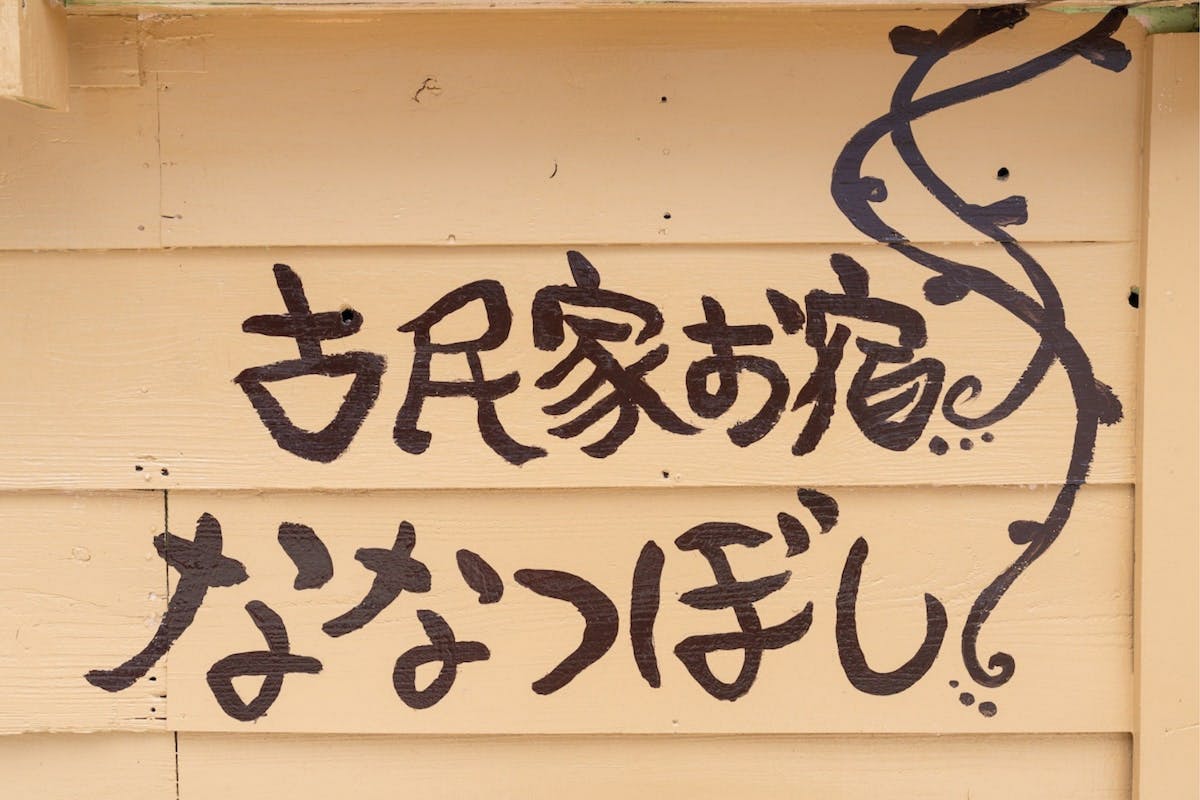 古民家お宿
ななつぼし